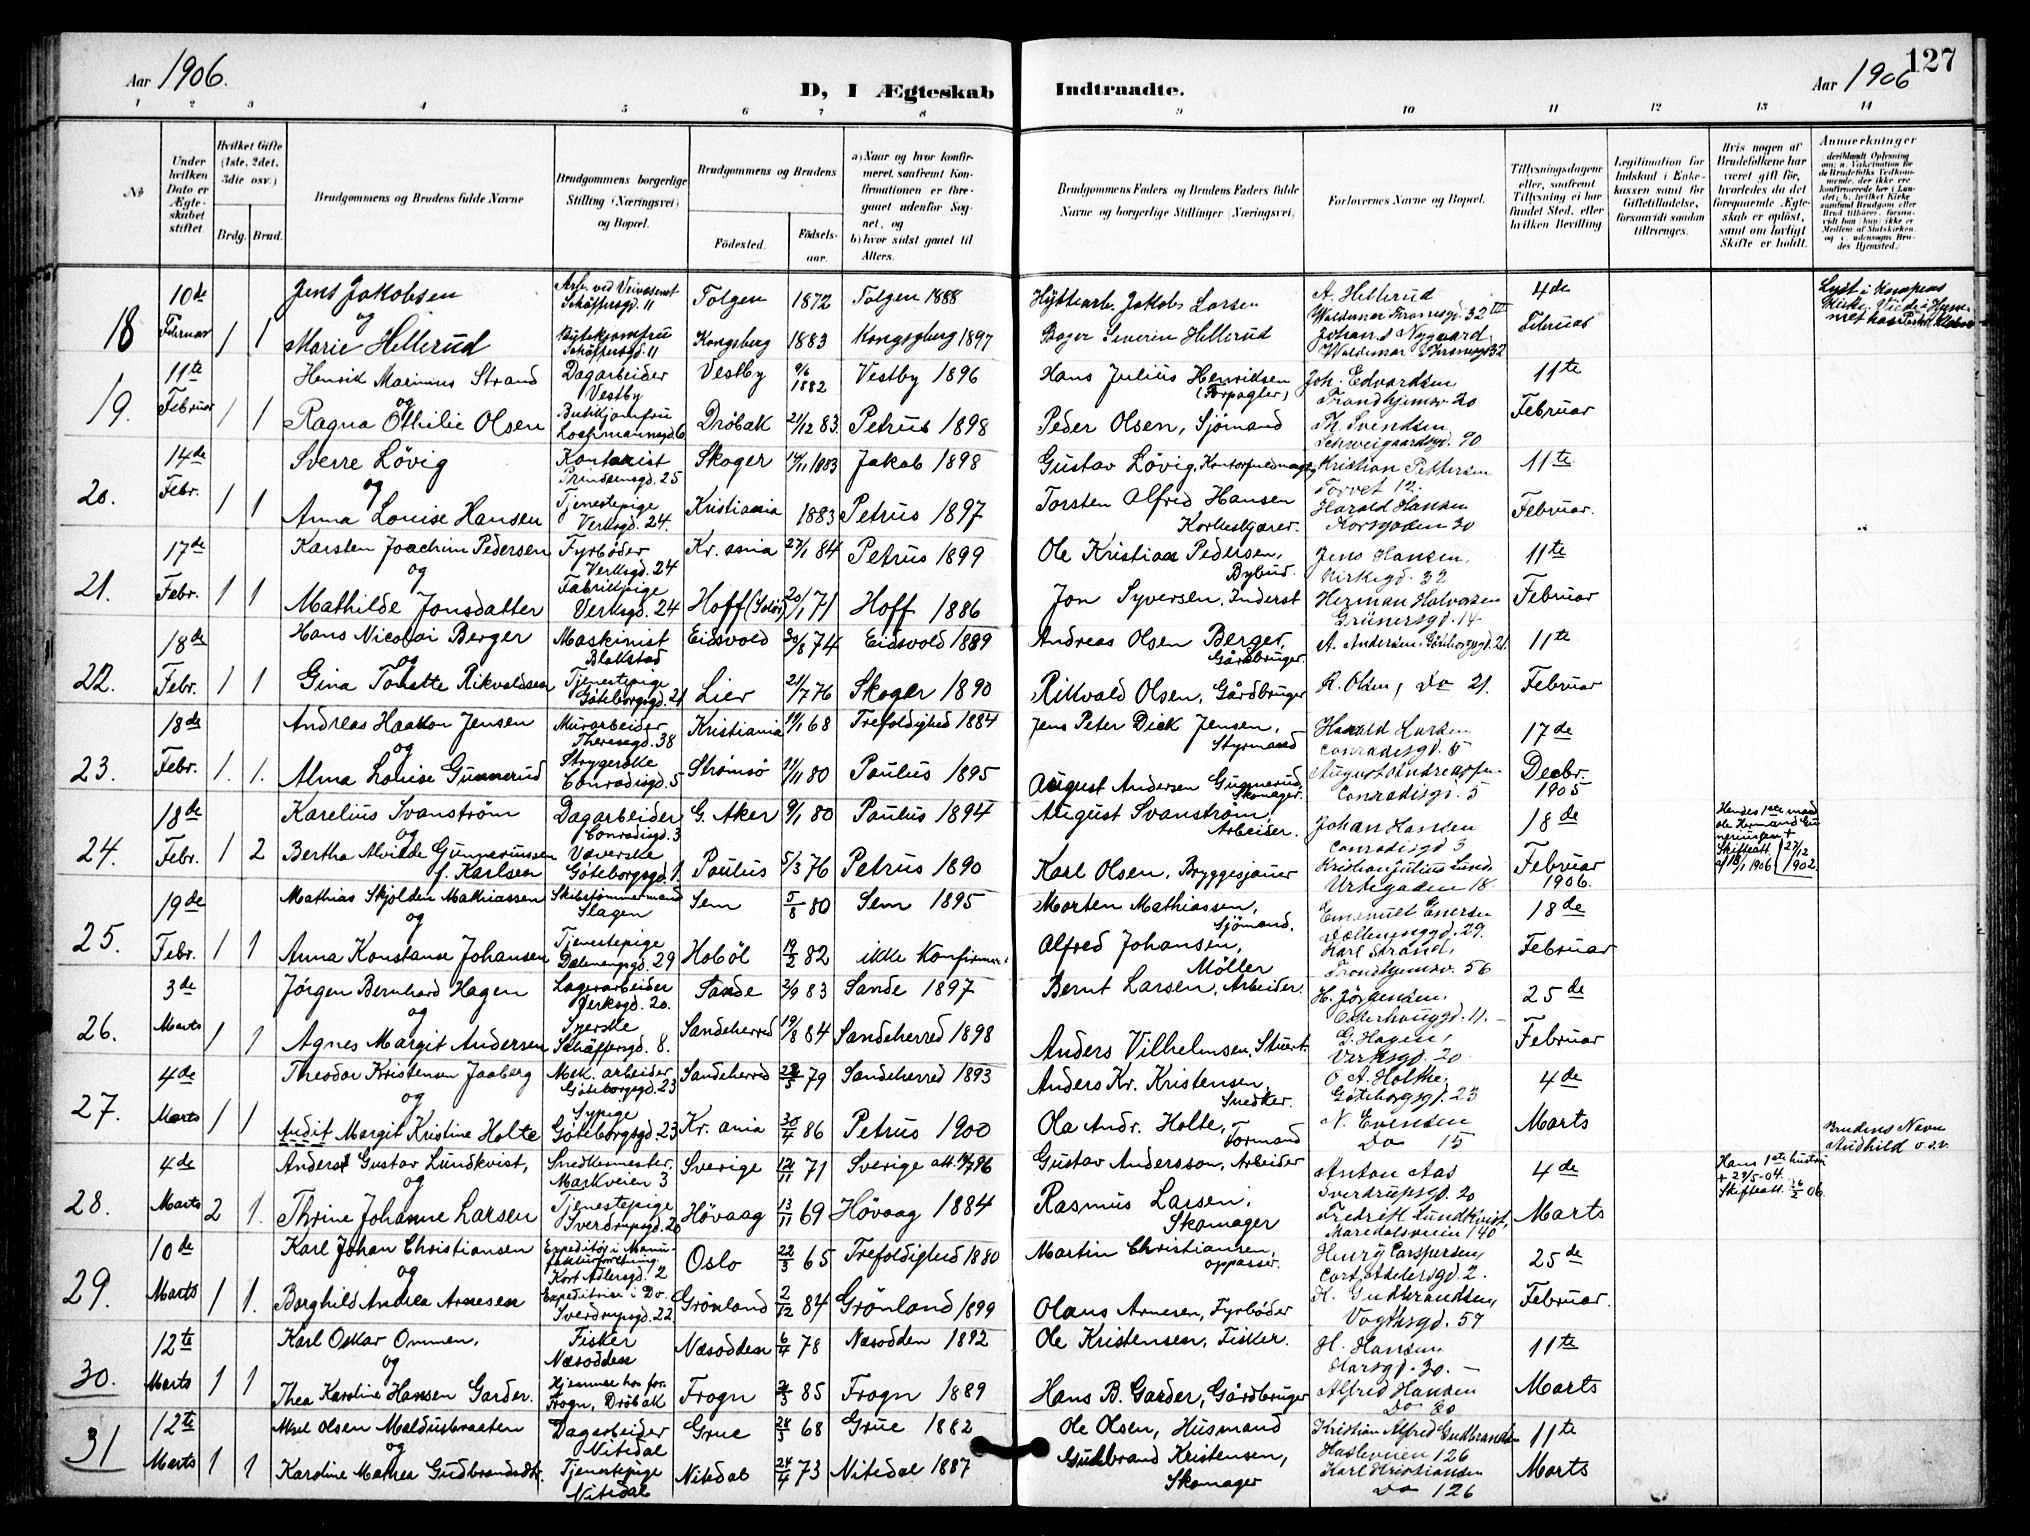 Aar 1906.
D, I Ægteskab Indtraadte.
Aar 1906
127
1 2 3 4 5 6 7 8 9 10 11 12 13 14
№
Under hvilken Dato er Ægteskabet stiftet.
Hvilket Gifte (1ste, 2det, 3die osv.)
Brdg. Brud.
Brudgommens og Brudens fulde Navne
Brudgommens borgerlige Stilling (Næringsvei) og Bopæl.
Brudgommens og Brudens
Fødested. Fødselsaar.
a) Naar og hvor konfirmeret, saafremt Konfirmationen er foregaaet udenfor Sognet, og
b) hvor sidst gaaet til Alters.
Brudgommens Faders og Brudens Faders fulde Navne og borgerlige Stillinger (Næringsvei)
Forlovernes Navne og Bopæl.
Tillysningsdagene eller, saafremt Tillysning ei har fundet Sted, efter hvilken Bevilling.
Legitimation for Indskud i Enkekassen samt for Giftetilladelse, forsaavidt saadan tiltrænges.
Hvis nogen af Brudefolkene har været gift før, hvorledes da det foregaaende Ægteskab er opløst, samt om lovligt Skifte er holdt.
Anmærkninger
18 10de Februar 1 1
Jens Jakobsen
Arb. ved Veivæsenet Schäffersgd. 11
Tolgen 1872 Tolgen 1888
Hytterarb. Jakob Larsen
A. Hellerud Waldemar Thranesgd. 32
4de Februar
og
Marie Hellerud
Sytekjomfru Schäffersgd. 11
Kongsberg 1883 Kongsgberg 1897
Bager Severin Hellerud
Johan Nygaard Waldemar Thranesgd 32
19. 11te Februar 1 1
Henrik Marinius Strand
Dagarbeider Vestby
Vestby 9/6 1882 Vestby 1896
Hans Julius Henriksen (Forpagter)
Joh. Edvardsen Trondhjemsv. 20
11te Februar
og
Ragna Othilie Olsen
Butikjomfru
Drøbak 21/12 83. Petrus 1898
Peder Olsen, Sjømand
Th. Svendsen Schweigaardsgd. 90
20. 14de Febr. 1 1
Sverre Løvig
Kontorist Prinsensgd. 25
Skoger 14/11 1883 Jakob 1898
Gustav Løvig,
Kristian Pettersen Torvet 12.
11te Februar.
og
Anna Louise Hansen
Tjenestepige Verksgd. 24.
Kristiania 1883 Petrus 1897
Torsten Alfred Hansen
Harald Hansen Korsgaden 30
21. 17de Febr. 1 1
Karsten Joachim Pedersen
Fyrbøder Verksgd. 24
Kr. ania 27/1 84 Petrus 1899
Ole Kristian Pedersen, Bybud.
Jens Hansen, Kirkegd. 32
11te Februar
og
Mathilde Jonsdatter
Fabrikpige Verksgd. 24
Hoff (Solør) 20/1 71 Hoff 1886
Jon Syversen, Inderst
Herman Halvorsen Grünersgd. 14
22. 18de Febr. 1 1
Hans Nicolai Berger
Maskinist Blakstad
Eidsvold 30/8 74 Eidsvold 1889
Andreas Olsen Berger, Gårdbruger.
A. Andersen, Göteborgsgd. 21.
11te Februar
og
Gina Tonette Rikvoldsen
Tjenestepige Göteborgsgd. 21
Lier 21/7 76 Skoger 1890
Rikvold Olsen, Gårdbruger
R. Olsen, Do 21.
23. 18de Febr. 1. 1.
Andreas Haakon Jensen
Murarbeider Theresegd. 38
Kristiania 19/1 68 Trefoldighed 1884
Jens Peter Dick Jensen, Styrmand
Harald Larsen Conradisgd. 5
17de Decbr. 1905
og
Alma Louise Gunnerud
Strygerske Conradisgd. 5
Strømsø 21/11 80 Paulus 1895
August Andersen Gunnerud, Skomager.
August Andreassen Conradisgd. 5
24. 18de Febr. 1 2
Karelius Svanstrøm
Dagarbeider Conradisgd. 3
G. Aker 9/1 80 Paulus 1894
August Svanstrøm, Arbeider.
Johan Hansen Conradisgd 3
18de Februar 1906.
Hendes 1ste mand Ole Hermand Gunneriussen + 27/12 1902. Skifteatt. af 18/1 1906
og
Bertha Alvilde Gunneriussen f. Karlsen
Væverske Göteborgsgd. 1.
Paulus 5/3 76 Petrus 1890
Karl Olsen, Bryggesjauer
Kristian Julius Lund, Urtegaden 18.
25. 19de Febr. 1 1
Mathias Skjolden Mathiassen
Skibstømmermand Slagen
Sem 5/8 80 Sem 1895
Morten Mathiassen, Sjømand.
Emanuel Enersen Dælenenggd. 29.
18de Februar
og
Anna Konstanse Johansen
Tjenestepige Dælenengsgd. 29
Hobøl 19/2 82 ikke Konfirmer.
Alfred Johansen, Møller
Karl Strand, Trondhjemsv. 56
26. 3de Marts 1 1
Jørgen Bernhard Hagen
Lagerarbeider Verksgd. 20.
Sande 2/9 83 Sande 1897
Bernt Larsen, Arbeider.
H. Jørgensen, Osterhausgd. 11.
25de Februar
og
Agnes Margit Andersen
Syerske Schäffersgd. 8.
Sandeherred 19/8 84 Sandeherred 1898
Anders Vilhelmsen, Stuert.
G. Hagen, Verksgd. 20
27. 4de Marts 1 1
Theodor Kristensen Jaaberg
Mek. arbeider Göteborgsgd. 23
Sandeherred 28/5 79 Sandeherred 1893
Anders Kr. Kristensen, Snedker.
O. A. Holthe, Göteborgsgd. 23
4de Marts
og
Audit Margit Kristine Holte
Sypige Göteborgsgd. 23
Kr. ania 30/4 86 Petrus 1900
Ola Andr. Holte, Formand
N. Evensen Do 15
Brudens Navn Audhild o.s.v.
28. 4de Marts 2 1.
Anders Gustav Lundkvist,
Snedkermester, Markveien 3
Sverige 12/11 71 Sverige
Gustav Andersson, Arbeider
Anton Aas Sverdrupsgd. 20
4de Marts
Hans 1ste hustru + 29/5-04. Skifteatt. 26/2 06.
og
Thrine Johanne Larsen
Tjenestepige Sverdrupsgd. 20
Høvaag 13/11 69 Høvaag 1884
Rasmus Larsen, Skomager
Fredrik Lundkvist, Maridalsveien 140
29. 10de Marts 1 1.
Karl Johan Christiansen
Expeditør i Manufakturforretning. Kort Adlersgd. 2
Oslo 22/5 65 Trefoldighed 1880
Martin Christiansen, oppasser.
Henry Carspersen, Cort Adelersgd. 2.
25de Februar.
og
Borghild Andrea Arnesen
Expeditrice i Do. Sverdrupsgd. 22.
Grønland 2/12 84 Grønland 1899
Olaus Arnesen, Fyrbøder
H. Gudbrandsen, Vogtsgd. 57
30. 12te Marts 1 1
Karl Oskar Ommen,
Fisker Næsodden
Næsodden 6/4 78 Næsodden 1892
Ole Kristensen, Fisker.
H. Hansen Korsgd. 30.
11te Marts
og
Thea Karoline Hansen Garder.
Hjemme hos for. Frogn, Drøbak
Frogn 85 Frogn 1889
Hans B. Garder, Gårdbruger
Alfred Hansen Do 30
31 12te Marts 1 1
Axel Olsen Maldusbraaten
Dagarbeider Nitedal
Grue 28/3 68 Grue 1882
Ole Olsen, Husmand
Kristian Alfred Gudbrandsen Hasleveien 126
11te Marts
og
Karoline Mathea Gudbrandsdtr.
Tjenestepige Nitedal
Nitedal 24/4 73 Nitedal 1887
Gudbrand Kristensen, Skomager
Karl Kristiansen Do 126